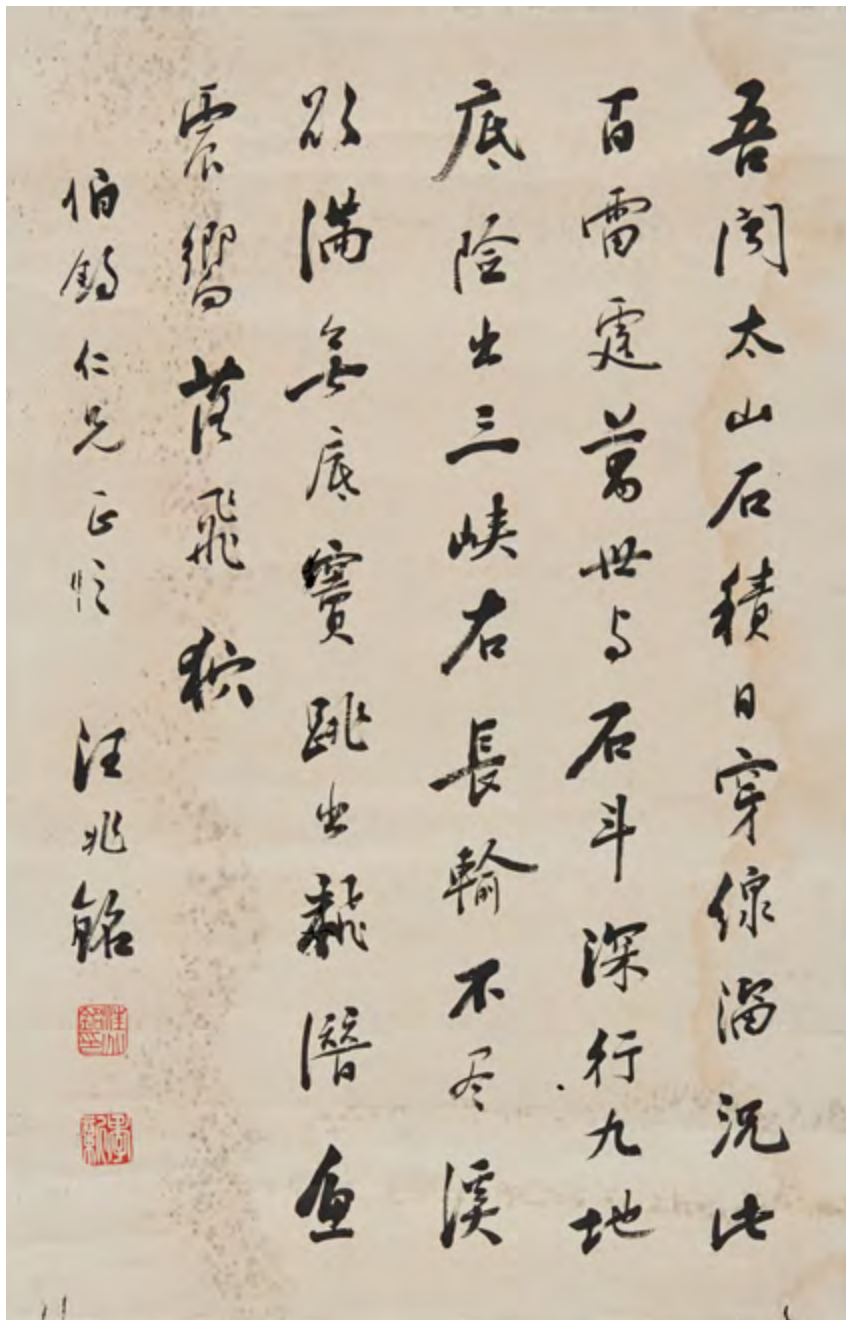 吾聞太山石積日穿線溜況此
百雷霆萬世与石斗深行九地
底險出三峽右長輸不尽溪
欲滿無底竇跳出飜潛魚
震響落飛狖
伯仁兄正 汪兆銘
汪兆銘印
季新